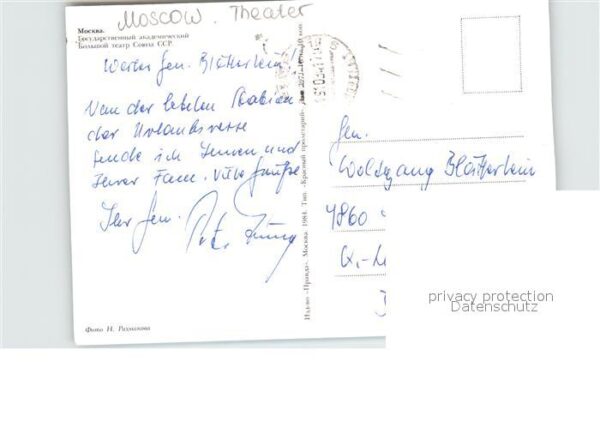 Moscow. Theater
Москва.
Государственный академический
Большой театр Союза ССР.
Werter Gen. Blätterlein
Von der letzten Station
der Urlaubsreise
sende ich Ihnen und
Ihrer Fam. viele Grüße
Ihr Gen. Peter
Фото Н. Рахманова
Изд-во «Правда». Москва. 1984. Тип. «Красный пролетарий».
Gen.
Wolfgang Blätterlein
4860
K.-
privacy protection
Datenschutz